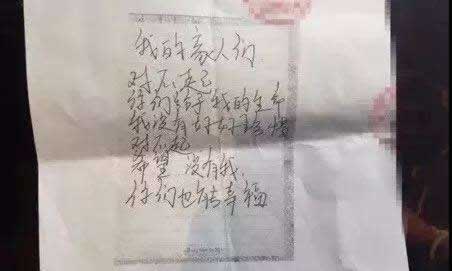 我的家人们
对不起
你们给于我的生命
我没有好好珍惜
对不起
希望 没有我.
你们也能幸福